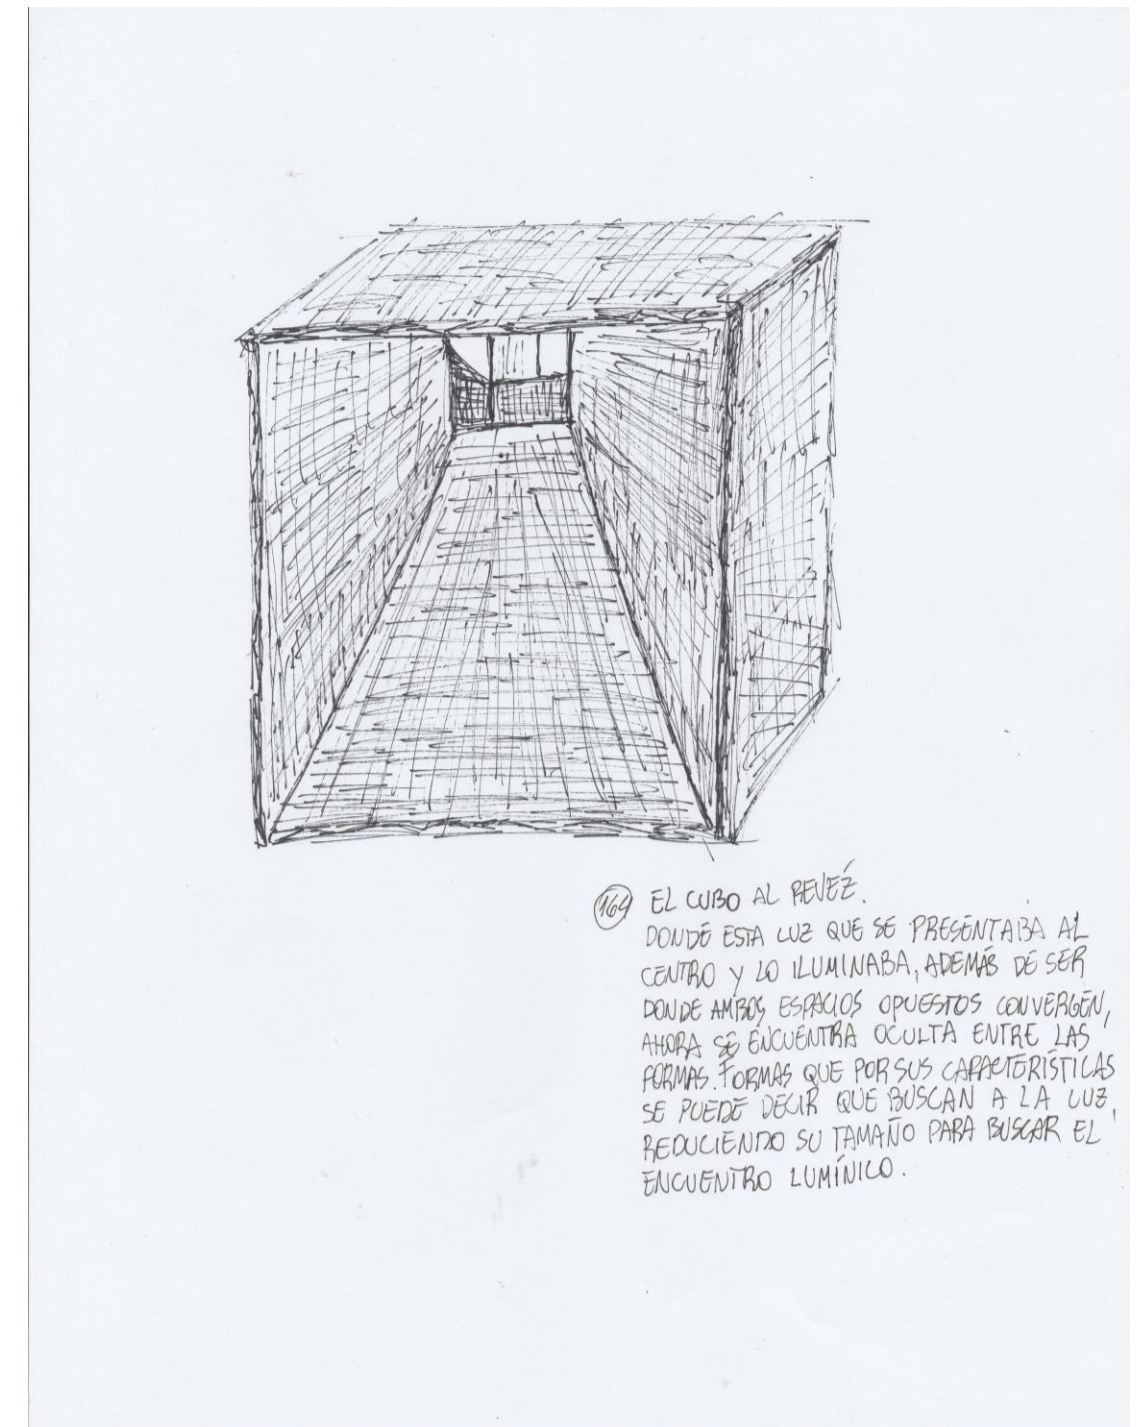 164 EL CUBO AL REVÉZ.
DONDE ESTA LUZ QUE SE PRESENTABA AL
CENTRO Y LO ILUMINABA, ADEMÁS DE SER
DONDE AMBOS ESPACIOS OPUESTOS CONVERGEN,
AHORA SE ENCUENTRA OCULTA ENTRE LAS
FORMAS. FORMAS QUE POR SUS CARACTERÍSTICAS
SE PUEDE DECIR QUE BUSCAN A LA LUZ,
REDUCIENDO SU TAMAÑO PARA BUSCAR EL
ENCUENTRO LUMÍNICO.